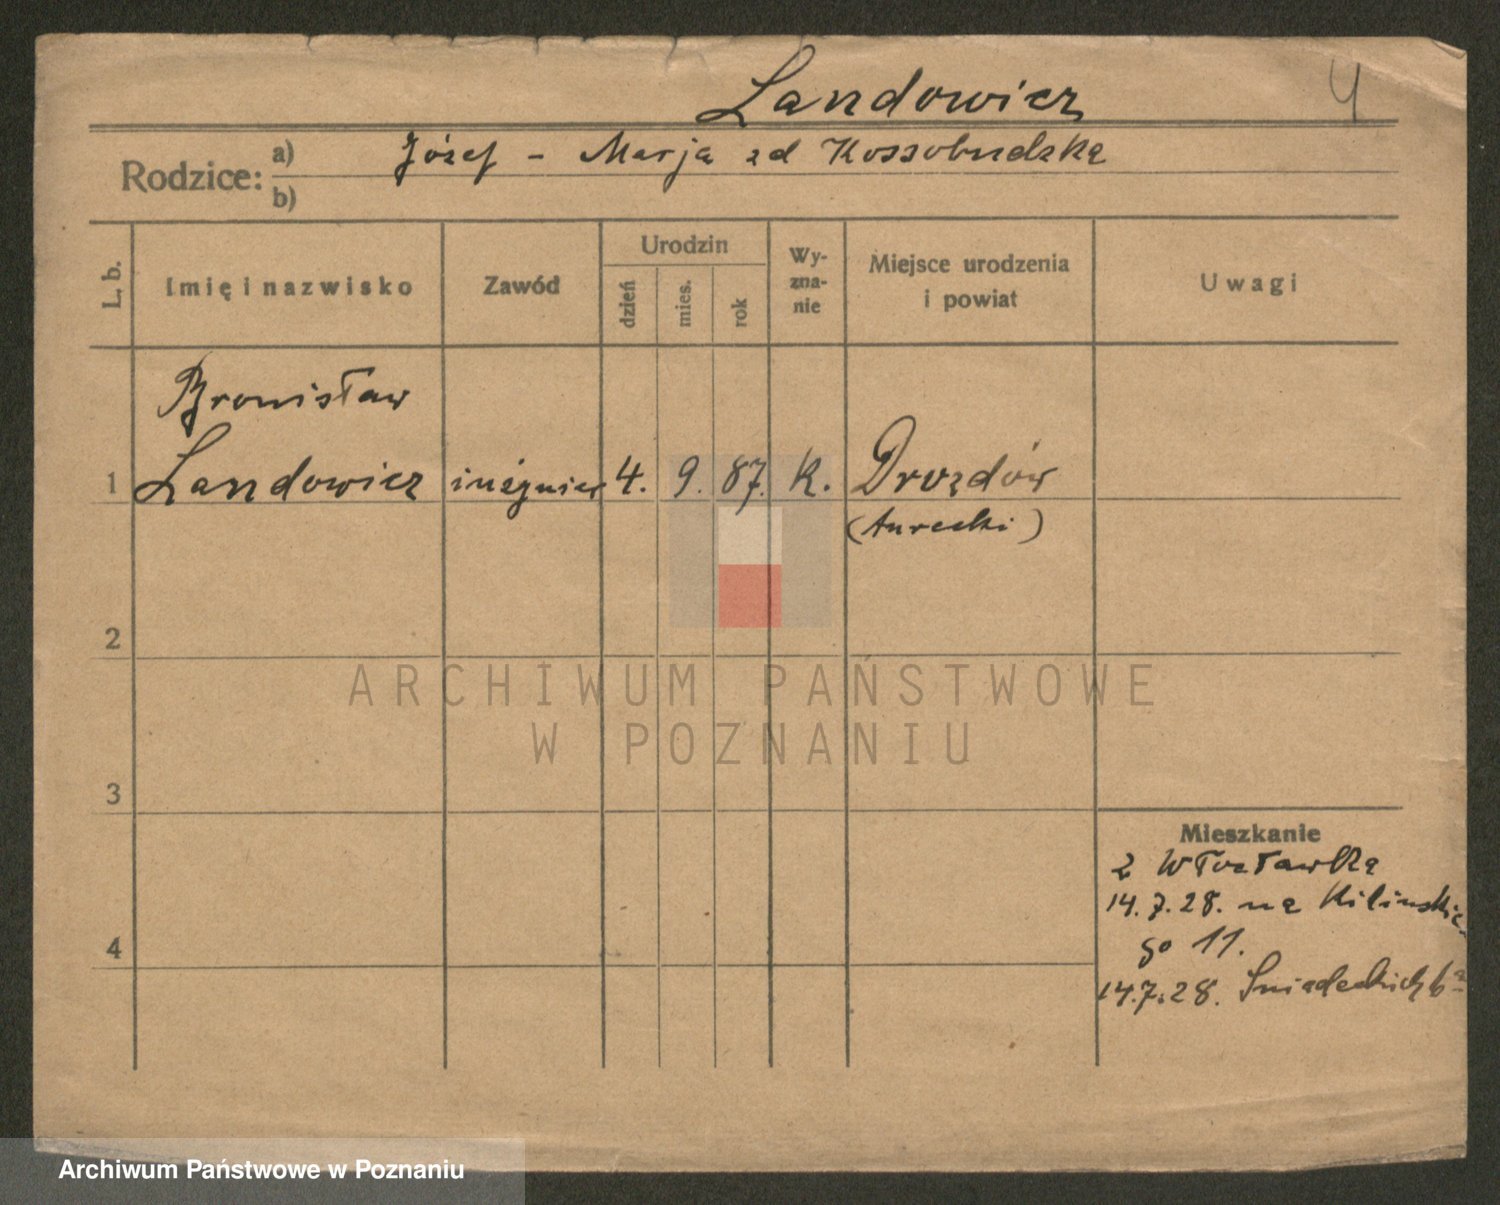 Landowicz
4
Rodzice:
a) Józef - Marja zd Kossobudzka
b)
L. b.
Imię i nazwisko
Zawód
Urodzin
dzień
mies.
rok
Wy-
zna-
nie
Miejsce urodzenia
i powiat
Uwagi
Bronisław
1 Landowicz inżynier 4. 9. 87. K. Drozdów
(turecki)
2
3
4
ARCHIWUM PAŃSTWOWE
W POZNANIU
Mieszkanie
z Włocławka
14.7.28. na Kilińskie
go 11.
14.7.28. Śniadeckich
Archiwum Państwowe w Poznaniu